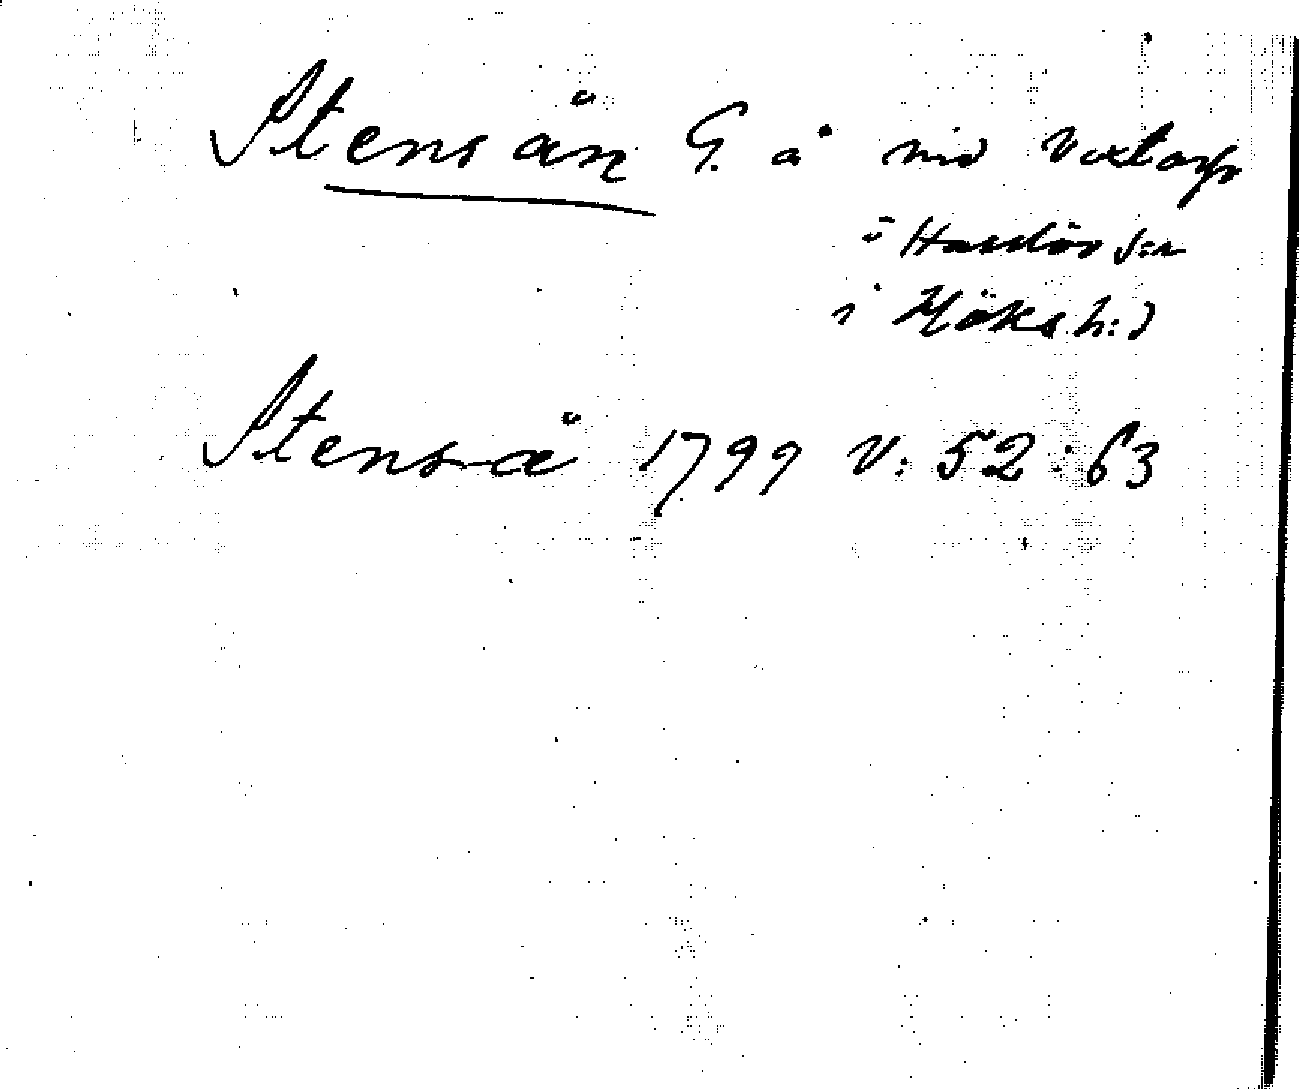 Stensån G. å vid Vaxtorp
i Hasslövs sn
i Höks h:d
Stenså 1799 V: 52:63